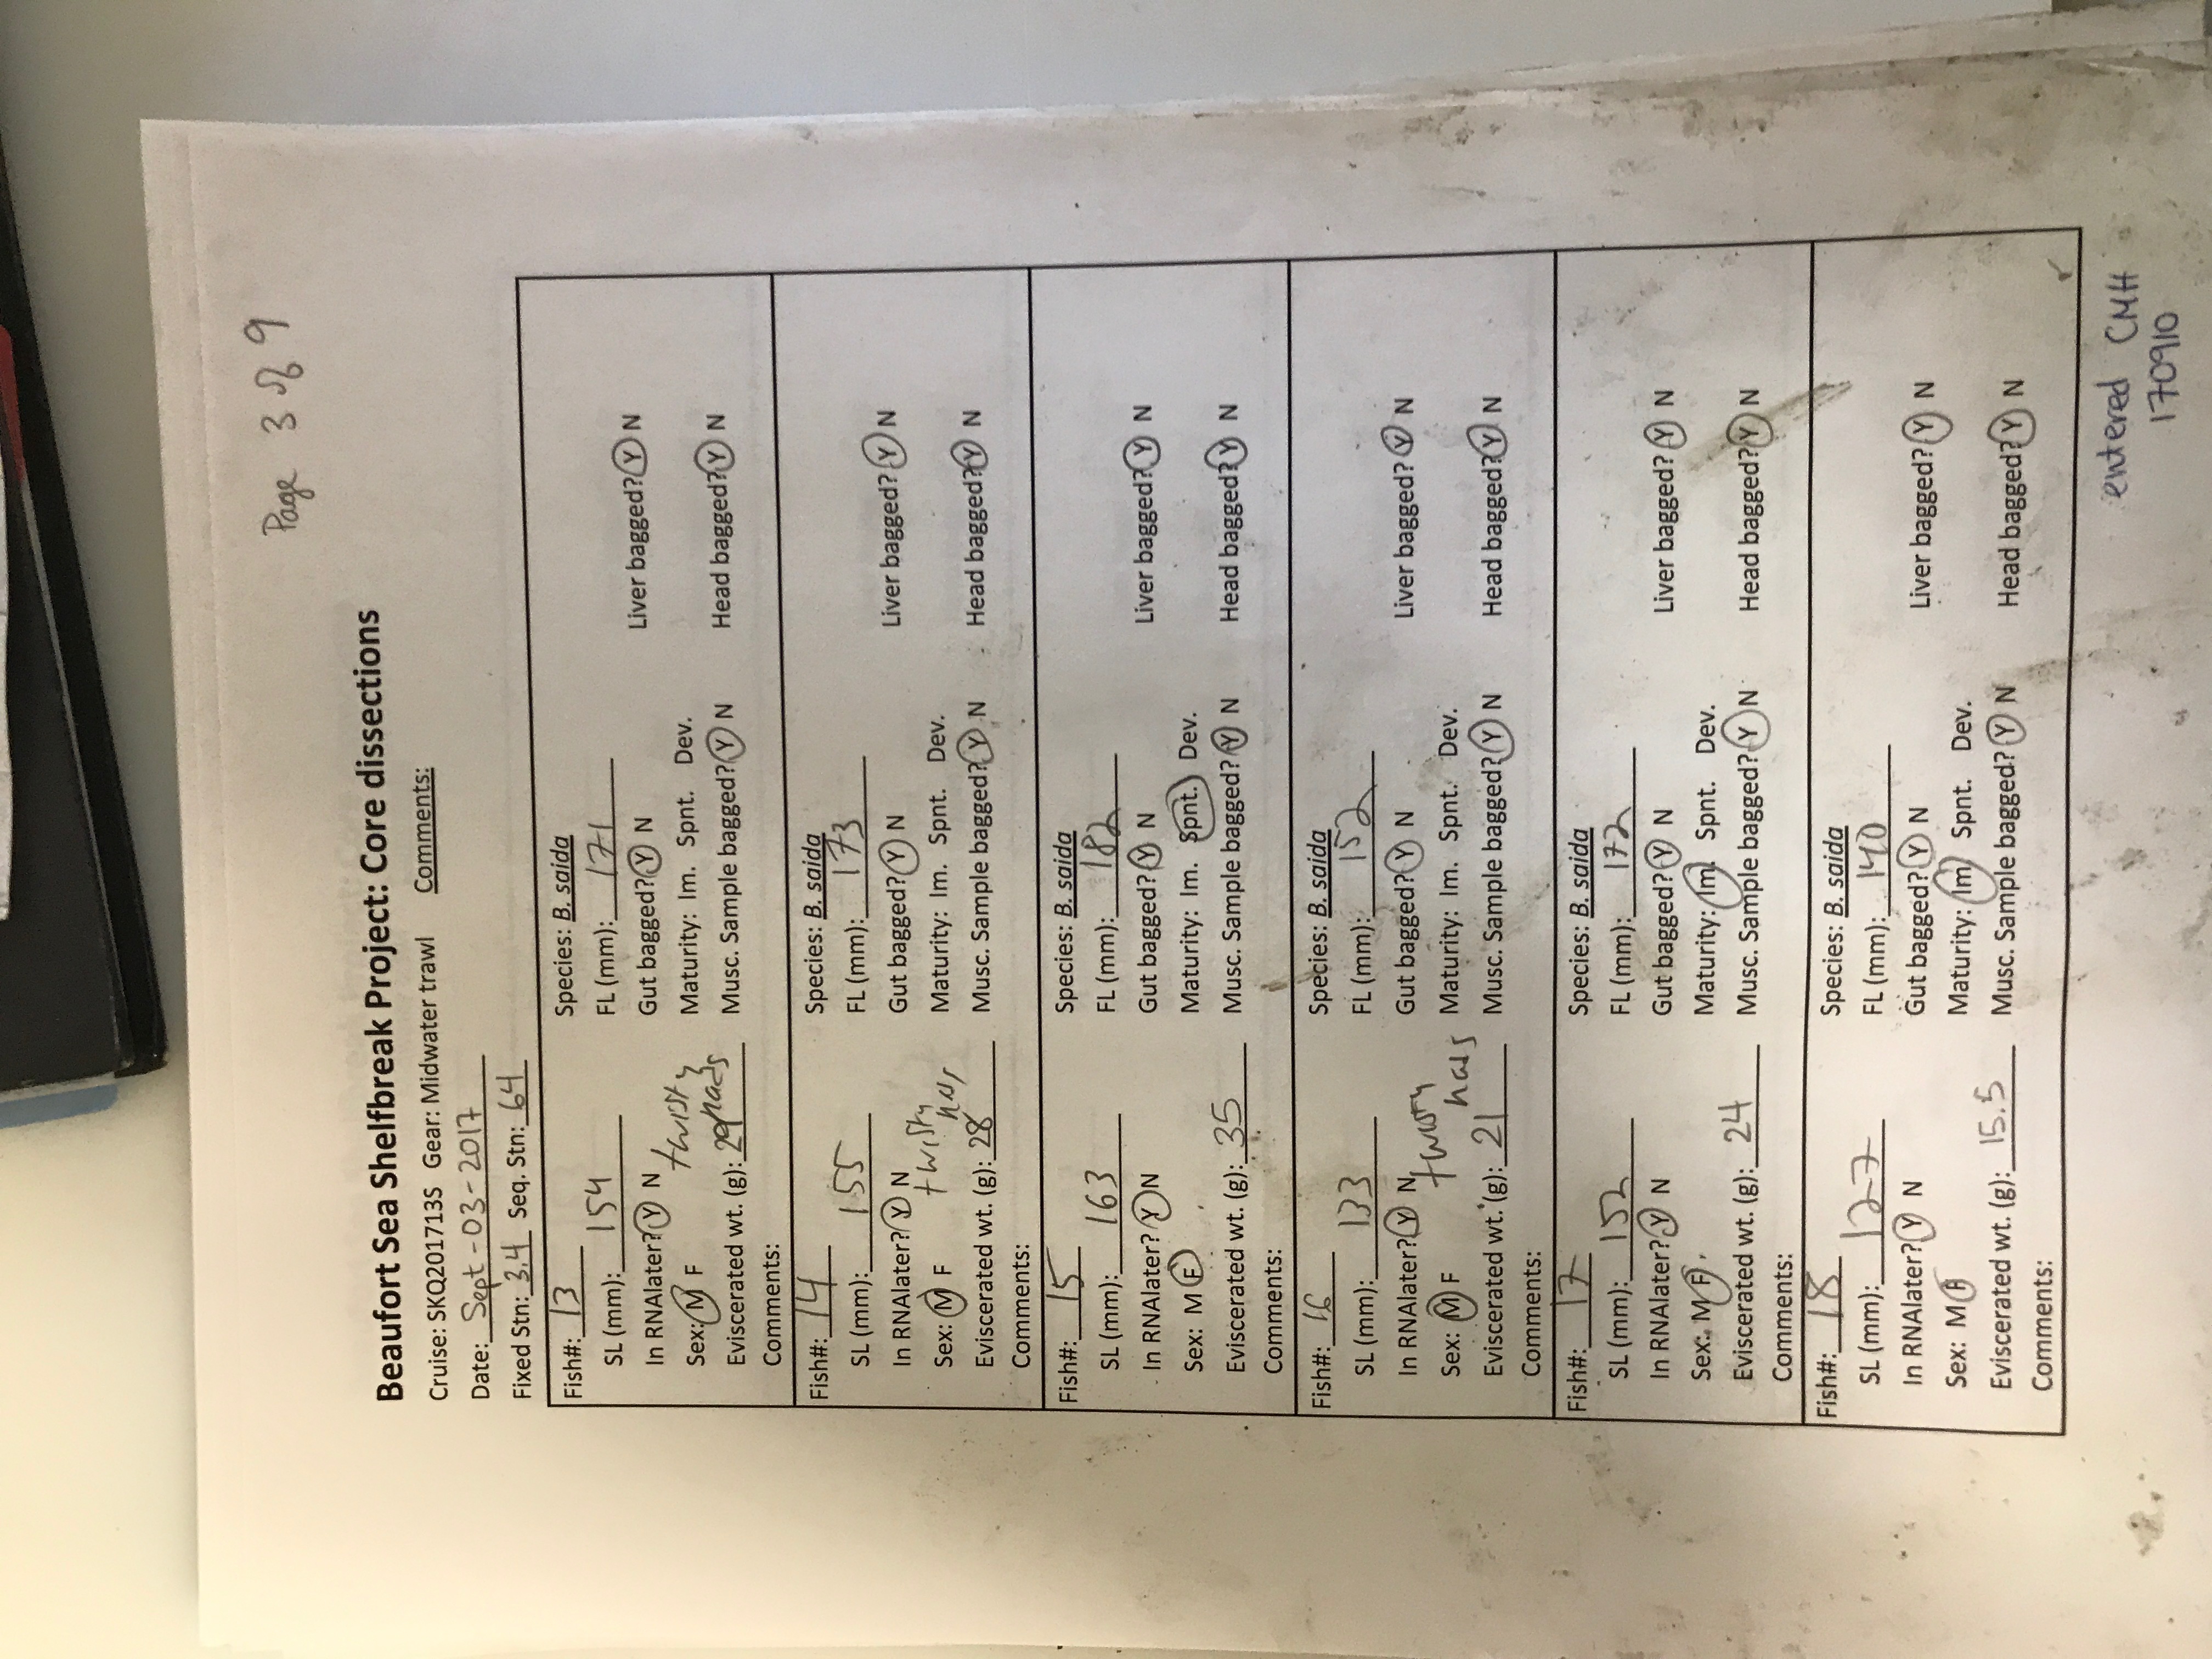 Page 3 of 9
Beaufort Sea Shelfbreak Project: Core dissections
Cruise: SKQ201713S Gear: Midwater trawl Comments:
Date: Sept-03-2017
Fixed Stn: 3.4 Seq. Stn: 64
Fish#: 13 Species: B. saida
SL (mm): 154 FL (mm): 171
In RNAlater? Y N Gut bagged? Y N Liver bagged? Y N
twisty
Sex: M F Maturity: Im. Spnt. Dev.
Eviscerated wt. (g): 29 Musc. Sample bagged? Y N Head bagged? Y N
Comments:
Fish#: 14 Species: B. saida
SL (mm): 155 FL (mm): 173
In RNAlater? Y N Gut bagged? Y N Liver bagged? Y N
twisty
Sex: M F Maturity: Im. Spnt. Dev.
Eviscerated wt. (g): 28 Musc. Sample bagged? Y N Head bagged? Y N
Comments:
Fish#: 15 Species: B. saida
SL (mm): 163 FL (mm): 182
In RNAlater? Y N Gut bagged? Y N Liver bagged? Y N
Sex: M F Maturity: Im. Spnt. Dev.
Eviscerated wt. (g): 35 Musc. Sample bagged? Y N Head bagged? Y N
Comments:
Fish#: 16 Species: B. saida
SL (mm): 133 FL (mm): 152
In RNAlater? Y N Gut bagged? Y N Liver bagged? Y N
Sex: M F Maturity: Im. Spnt. Dev.
Eviscerated wt. (g): 21 Musc. Sample bagged? Y N Head bagged? Y N
Comments:
Fish#: 17 Species: B. saida
SL (mm): 152 FL (mm): 172
In RNAlater? Y N Gut bagged? Y N Liver bagged? Y N
Sex: M F Maturity: Im. Spnt. Dev.
Eviscerated wt. (g): 24 Musc. Sample bagged? Y N Head bagged? Y N
Comments:
Fish#: 18 Species: B. saida
SL (mm): 127 FL (mm): 140
In RNAlater? Y N Gut bagged? Y N Liver bagged? Y N
Sex: M F Maturity: Im. Spnt. Dev.
Eviscerated wt. (g): 15.5 Musc. Sample bagged? Y N Head bagged? Y N
Comments:
entered CMH
170910